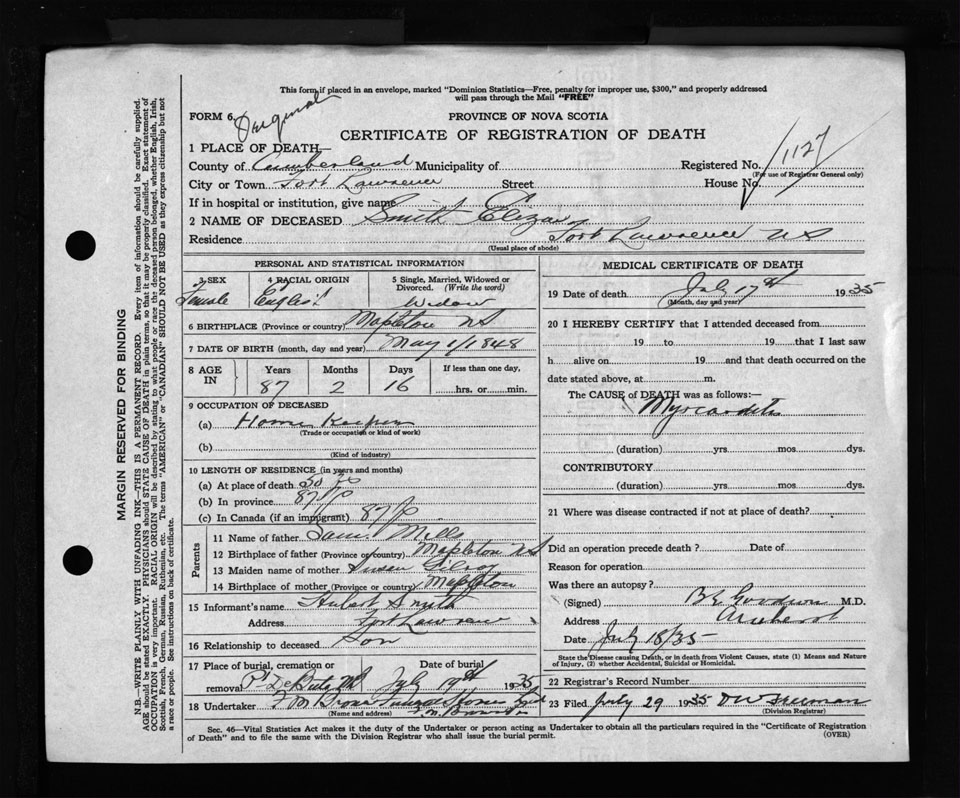 This form if placed in an envelope, marked "Dominion Statistics—Free, penalty for improper use, $300," and properly addressed
will pass through the Mail "FREE"
FORM 6. Original PROVINCE OF NOVA SCOTIA
CERTIFICATE OF REGISTRATION OF DEATH
1 PLACE OF DEATH—
County of Cumberland Municipality of Registered No. 1127
(For use of Registrar General only)
City or Town Fort Lawrence Street House No.
If in hospital or institution, give name
2 NAME OF DECEASED Smith Eliza
Residence Fort Lawrence NS
(Usual place of abode)
PERSONAL AND STATISTICAL INFORMATION
3 SEX 4 RACIAL ORIGIN 5 Single, Married, Widowed or Divorced. (Write the word)
Female English Widow
6 BIRTHPLACE (Province or country) Mapleton NS
7 DATE OF BIRTH (month, day and year) May 1/1848
8 AGE IN Years Months Days If less than one day,
87 2 16 hrs. or min.
9 OCCUPATION OF DECEASED
(a) Home Keeper
(Trade or occupation or kind of work)
(b)
(Kind of industry)
10 LENGTH OF RESIDENCE (in years and months)
(a) At place of death 50
(b) In province 87
(c) In Canada (if an immigrant) 87
Parents
11 Name of father Saml Mills
12 Birthplace of father (Province or country) Mapleton NS
13 Maiden name of mother Susan Gilroy
14 Birthplace of mother (Province or country) Mapleton
15 Informant's name Hubert Smith
Address Fort Lawrence
16 Relationship to deceased Son
17 Place of burial, cremation or removal Date of burial
Pt De Bute July 19th 1935
18 Undertaker
(Name and address)
MEDICAL CERTIFICATE OF DEATH
19 Date of death July 17th 1935
(Month, day and year)
20 I HEREBY CERTIFY that I attended deceased from
19 to 19 that I last saw
h alive on 19 and that death occurred on the
date stated above, at m.
The CAUSE of DEATH was as follows:—
Myocarditis
(duration) yrs. mos. dys.
CONTRIBUTORY
(duration) yrs. mos. dys.
21 Where was disease contracted if not at place of death?
Did an operation precede death? Date of
Reason for operation
Was there an autopsy?
(Signed) B E Goodwin M.D.
Address Amherst
Date July 18/35
State the Disease causing Death, or in death from Violent Causes, state (1) Means and Nature
of Injury, (2) whether Accidental, Suicidal or Homicidal.
22 Registrar's Record Number
23 Filed July 29 1935 Freeman
(Division Registrar)
Sec. 46—Vital Statistics Act makes it the duty of the Undertaker or person acting as Undertaker to obtain all the particulars required in the "Certificate of Registration
of Death" and to file the same with the Division Registrar who shall issue the burial permit. (OVER)
MARGIN RESERVED FOR BINDING
N.B.—WRITE PLAINLY WITH UNFADING INK—THIS IS A PERMANENT RECORD. Every item of information should be carefully supplied.
AGE should be stated EXACTLY. PHYSICIANS should STATE CAUSE OF DEATH in plain terms, so that it may be properly classified. Exact statement of
OCCUPATION is very important. RACIAL ORIGIN will be described by stating to what people or race the deceased person belonged, whether English, Irish,
Scottish, French, German, Russian, Ruthenian, etc. The terms "AMERICAN" or "CANADIAN" SHOULD NOT BE USED as they express citizenship but not
a race or people. See instructions on back of certificate.